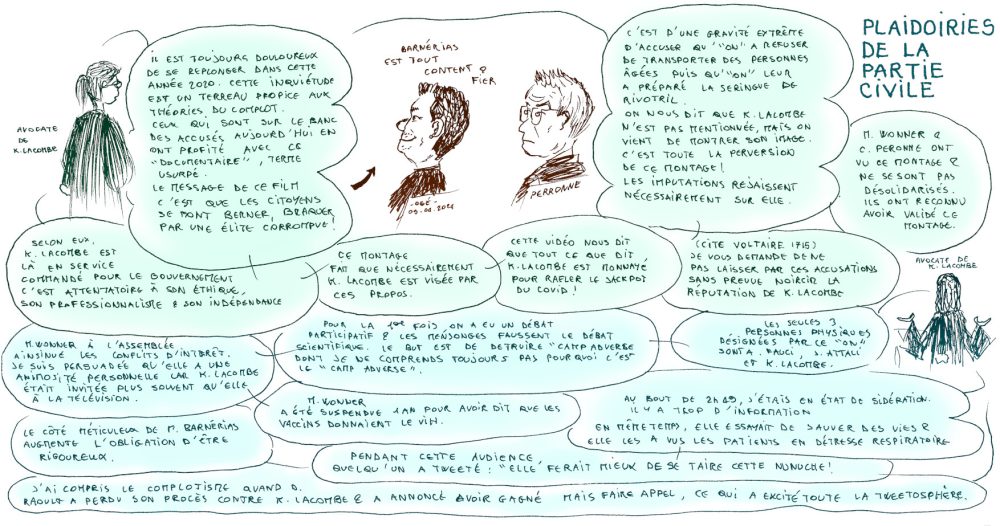 PLAIDOIRIES
DE LA
PARTIE
CIVILE
AVOCATE
DE
K. LACOMBE
IL EST TOUJOURS DOULOUREUX
DE SE REPLONGER DANS CETTE
ANNÉE 2020. CETTE INQUIÉTUDE
EST UN TERREAU PROPICE AUX
THÉORIES DU COMPLOT.
CEUX QUI SONT SUR LE BANC
DES ACCUSÉS AUJOURD'HUI EN
ONT PROFITÉ AVEC CE
"DOCUMENTAIRE", TERME
USURPÉ.
LE MESSAGE DE CE FILM
C'EST QUE LES CITOYENS
SE FONT BERNER, BRAQUER
PAR UNE ÉLITE CORROMPUE!
BARNÉRIAS
EST TOUT
CONTENT &
FIER
PERRONNE
C'EST D'UNE GRAVITÉ EXTRÊME
D'ACCUSER QU'"ON" A REFUSER
DE TRANSPORTER DES PERSONNES
ÂGÉES PUIS QU'"ON" LEUR
A PRÉPARÉ LA SERINGUE DE
RIVOTRIL.
ON NOUS DIT QUE K. LACOMBE
N'EST PAS MENTIONNÉE, MAIS ON
VIENT DE MONTRER SON IMAGE.
C'EST TOUTE LA PERVERSION
DE CE MONTAGE!
LES IMPUTATIONS REJAISSENT
NÉCESSAIREMENT SUR ELLE.
M. WONNER &
C. PERONNE ONT
VU CE MONTAGE &
NE SE SONT PAS
DÉSOLIDARISÉS.
ILS ONT RECONNU
AVOIR VALIDÉ CE
MONTAGE.
SELON EUX,
K. LACOMBE EST
LÀ EN SERVICE
COMMANDÉ POUR LE GOUVERNEMENT
C'EST ATTENTATOIRE À SON ÉTHIQUE,
SON PROFESSIONNALISME & SON INDÉPENDANCE
CE MONTAGE
FAIT QUE NÉCESSAIREMENT
K. LACOMBE EST VISÉE PAR
CES PROPOS.
CETTE VIDÉO NOUS DIT
QUE TOUT CE QUE DIT
K. LACOMBE EST MONNAYÉ
POUR RAFLER LE JACKPOT
DU COVID!
(CITE VOLTAIRE 1715)
JE VOUS DEMANDE DE NE
PAS LAISSER PAR CES ACCUSATIONS
SANS PREUVE NOIRCIR LA
REPUTATION DE K. LACOMBE
AVOCATE DE
K. LACOMBE
M. WONNER À L'ASSEMBLÉE
A INSINUÉ LES CONFLITS D'INTÉRÊT.
JE SUIS PERSUADÉE QU'ELLE A UNE
ANIMOSITÉ PERSONNELLE CAR K. LACOMBE
ÉTAIT INVITÉE PLUS SOUVENT QU'ELLE
À LA TÉLÉVISION.
POUR LA 1ère FOIS ON A EU UN DÉBAT
PARTICIPATIF & LES MENSONGES FAUSSENT LE DÉBAT
SCIENTIFIQUE. LE BUT EST DE DETRUIRE "CAMP ADVERSE"
DONT JE NE COMPRENDS TOUJOURS PAS POURQUOI C'EST
LE "CAMP ADVERSE".
LES SEULES 3
PERSONNES PHYSIQUES
DÉSIGNÉES PAR CE "ON"
SONT A. FAUCI, J. ATTALI
ET K. LACOMBE.
M. WONNER
A ÉTÉ SUSPENDUE 1 AN POUR AVOIR DIT QUE LES
VACCINS DONNAIENT LE VIH.
AU BOUT DE 2H49, J'ÉTAIS EN ÉTAT DE SIDÉRATION.
IL Y A TROP D'INFORMATION
EN MÊME TEMPS, ELLE ESSAYAIT DE SAUVER DES VIES &
ELLE LES A VUS LES PATIENTS EN DÉTRESSE RESPIRATOIRE
LE CÔTÉ MÉTICULEUX DE M. BARNÉRIAS
AUGMENTE L'OBLIGATION D'ÊTRE
RIGOUREUX.
PENDANT CETTE AUDIENCE,
QUELQU'UN A TWEETÉ: "ELLE FERAIT MIEUX DE SE TAIRE CETTE NUNUCHE!
J'AI COMPRIS LE COMPLOTISME QUAND D.
RAOULT A PERDU SON PROCÈS CONTRE K. LACOMBE & A ANNONCÉ AVOIR GAGNÉ MAIS FAIRE APPEL, CE QUI A EXCITÉ TOUTE LA TWEETOSPHÈRE.